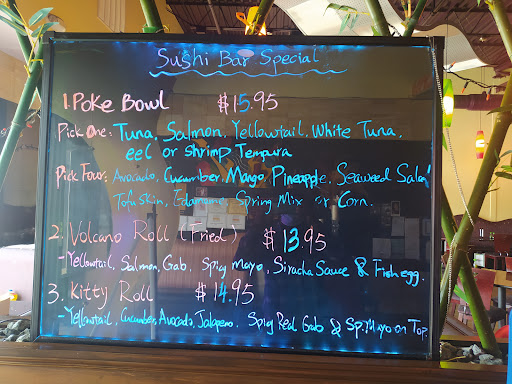 Sushi Bar Special
1. Poke Bowl $15.95
Pick One: Tuna, Salmon, Yellowtail, White Tuna,
eel or Shrimp Tempura
Pick Four: Avocado, Cucumber, Mango, Pineapple, Seaweed Salad
Tofu Skin, Edamame, Spring Mix or Corn.
2. Volcano Roll (Fried) $13.95
-Yellowtail, Salmon, Crab. Spicy mayo, Siracha Sauce & Fish egg.
3. Kitty Roll $14.95
-Yellowtail, Cucumber, Avocado, Jalapeno. Spicy Red Crab & Sp. Mayo on Top.